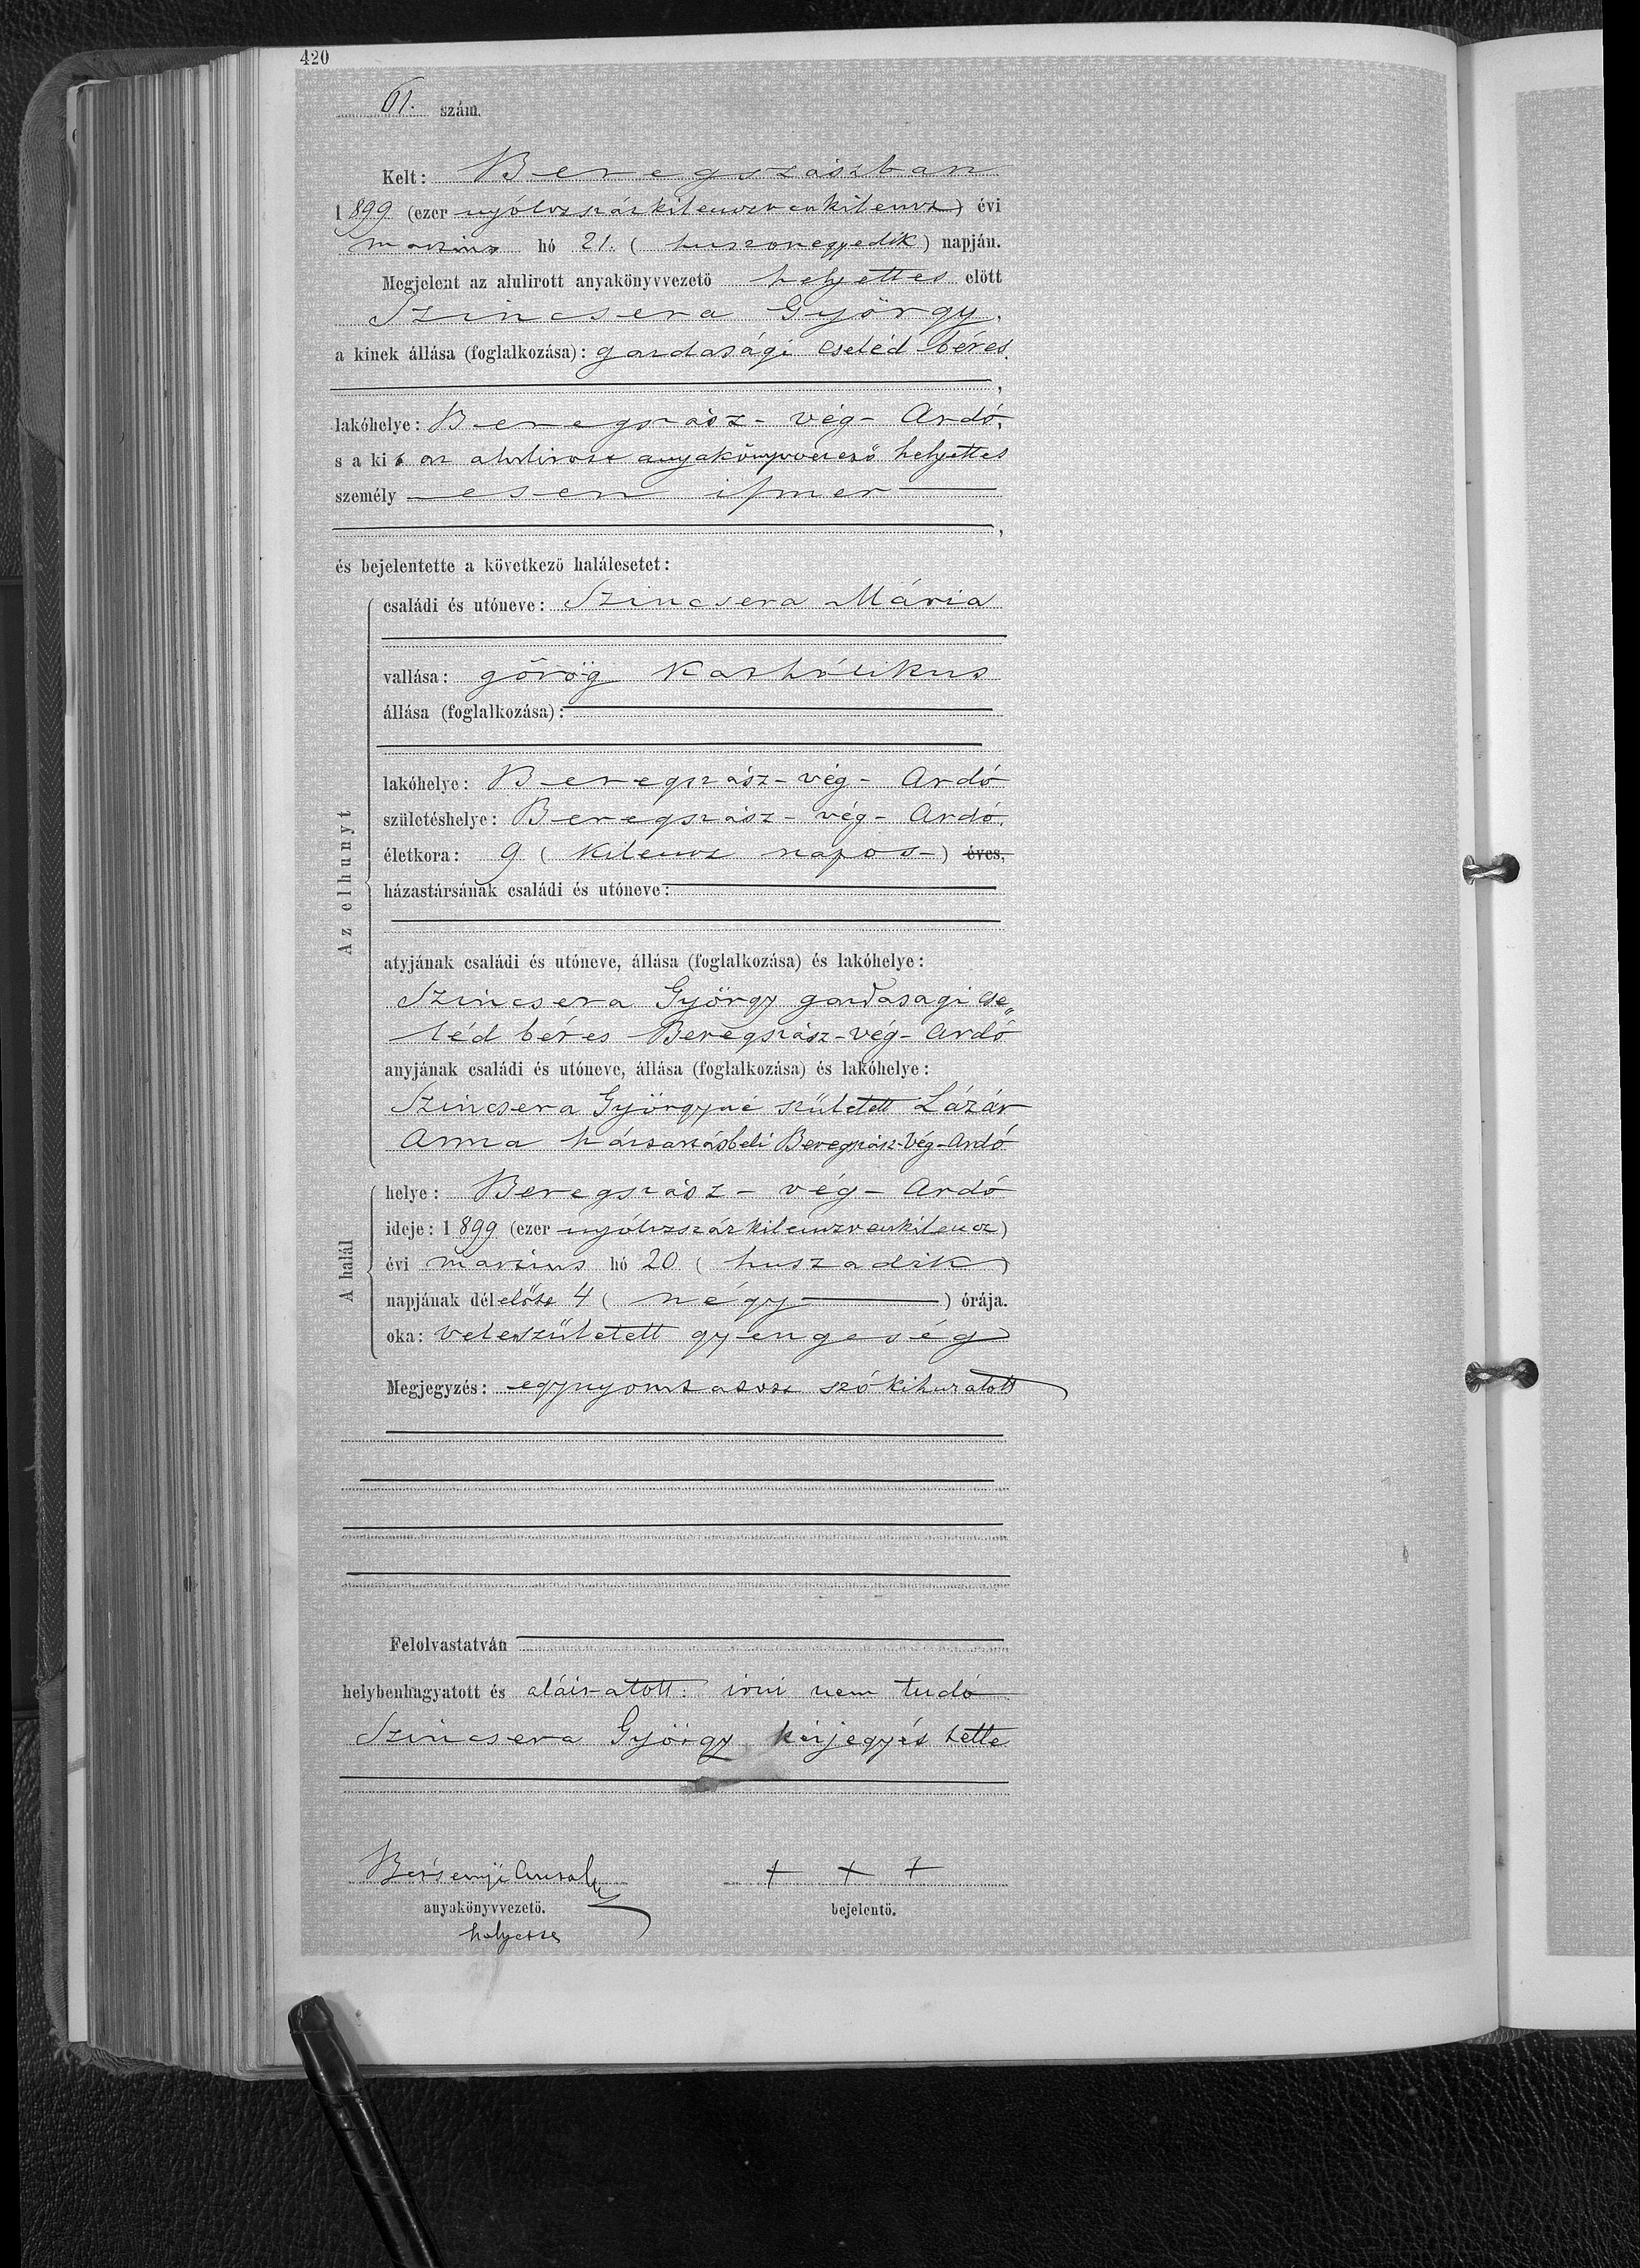 420
61. szám.
Kelt: Beregszászban
1899 (ezer nyólczszázkilenczvenkilencz) évi
marczius hó 21. (huszonegyedik) napján.
Megjelent az alulirott anyakönyvvezető helyettes előtt
Szincsera György,
a kinek állása (foglalkozása): gazdasági cseléd béres,
lakóhelye: Beregszász-vég-Ardó,
s a kit az alulirott anyakönyvvezető helyettes
személyesen ismer,
és bejelentette a következő halálesetet:
Az elhunyt
családi és utóneve: Szincsera Mária
vallása: görög katholikus
állása (foglalkozása):
lakóhelye: Beregszász-vég-Ardó
születéshelye: Beregszász-vég-Ardó,
életkora: 9 (kilencz napos) éves,
házastársának családi és utóneve:
atyjának családi és utóneve, állása (foglalkozása) és lakóhelye:
Szincsera György gazdasagi cse„
léd béres Beregszász-vég-Ardó
anyjának családi és utóneve, állása (foglalkozása) és lakóhelye:
Szincsera Györgyné született Lázár
Anna házartásbeli Beregszász-Vég-Ardó
A halál
helye: Beregszász-vég-Ardó
ideje: 1899 (ezer nyólczszázkilenczvenkilencz)
évi marczius hó 20 (huszadik)
napjának délelőtt 4 (négy) órája.
oka: veleszületett gyengeség
Megjegyzés: egy nyomtatott szó kihuzatott
Felolvastatván
helybenhagyatott és aláiratott: irni nem tudó
Szincsera György kézjegyét tette
+ + +
anyakönyvvezető. bejelentő.
helyettes